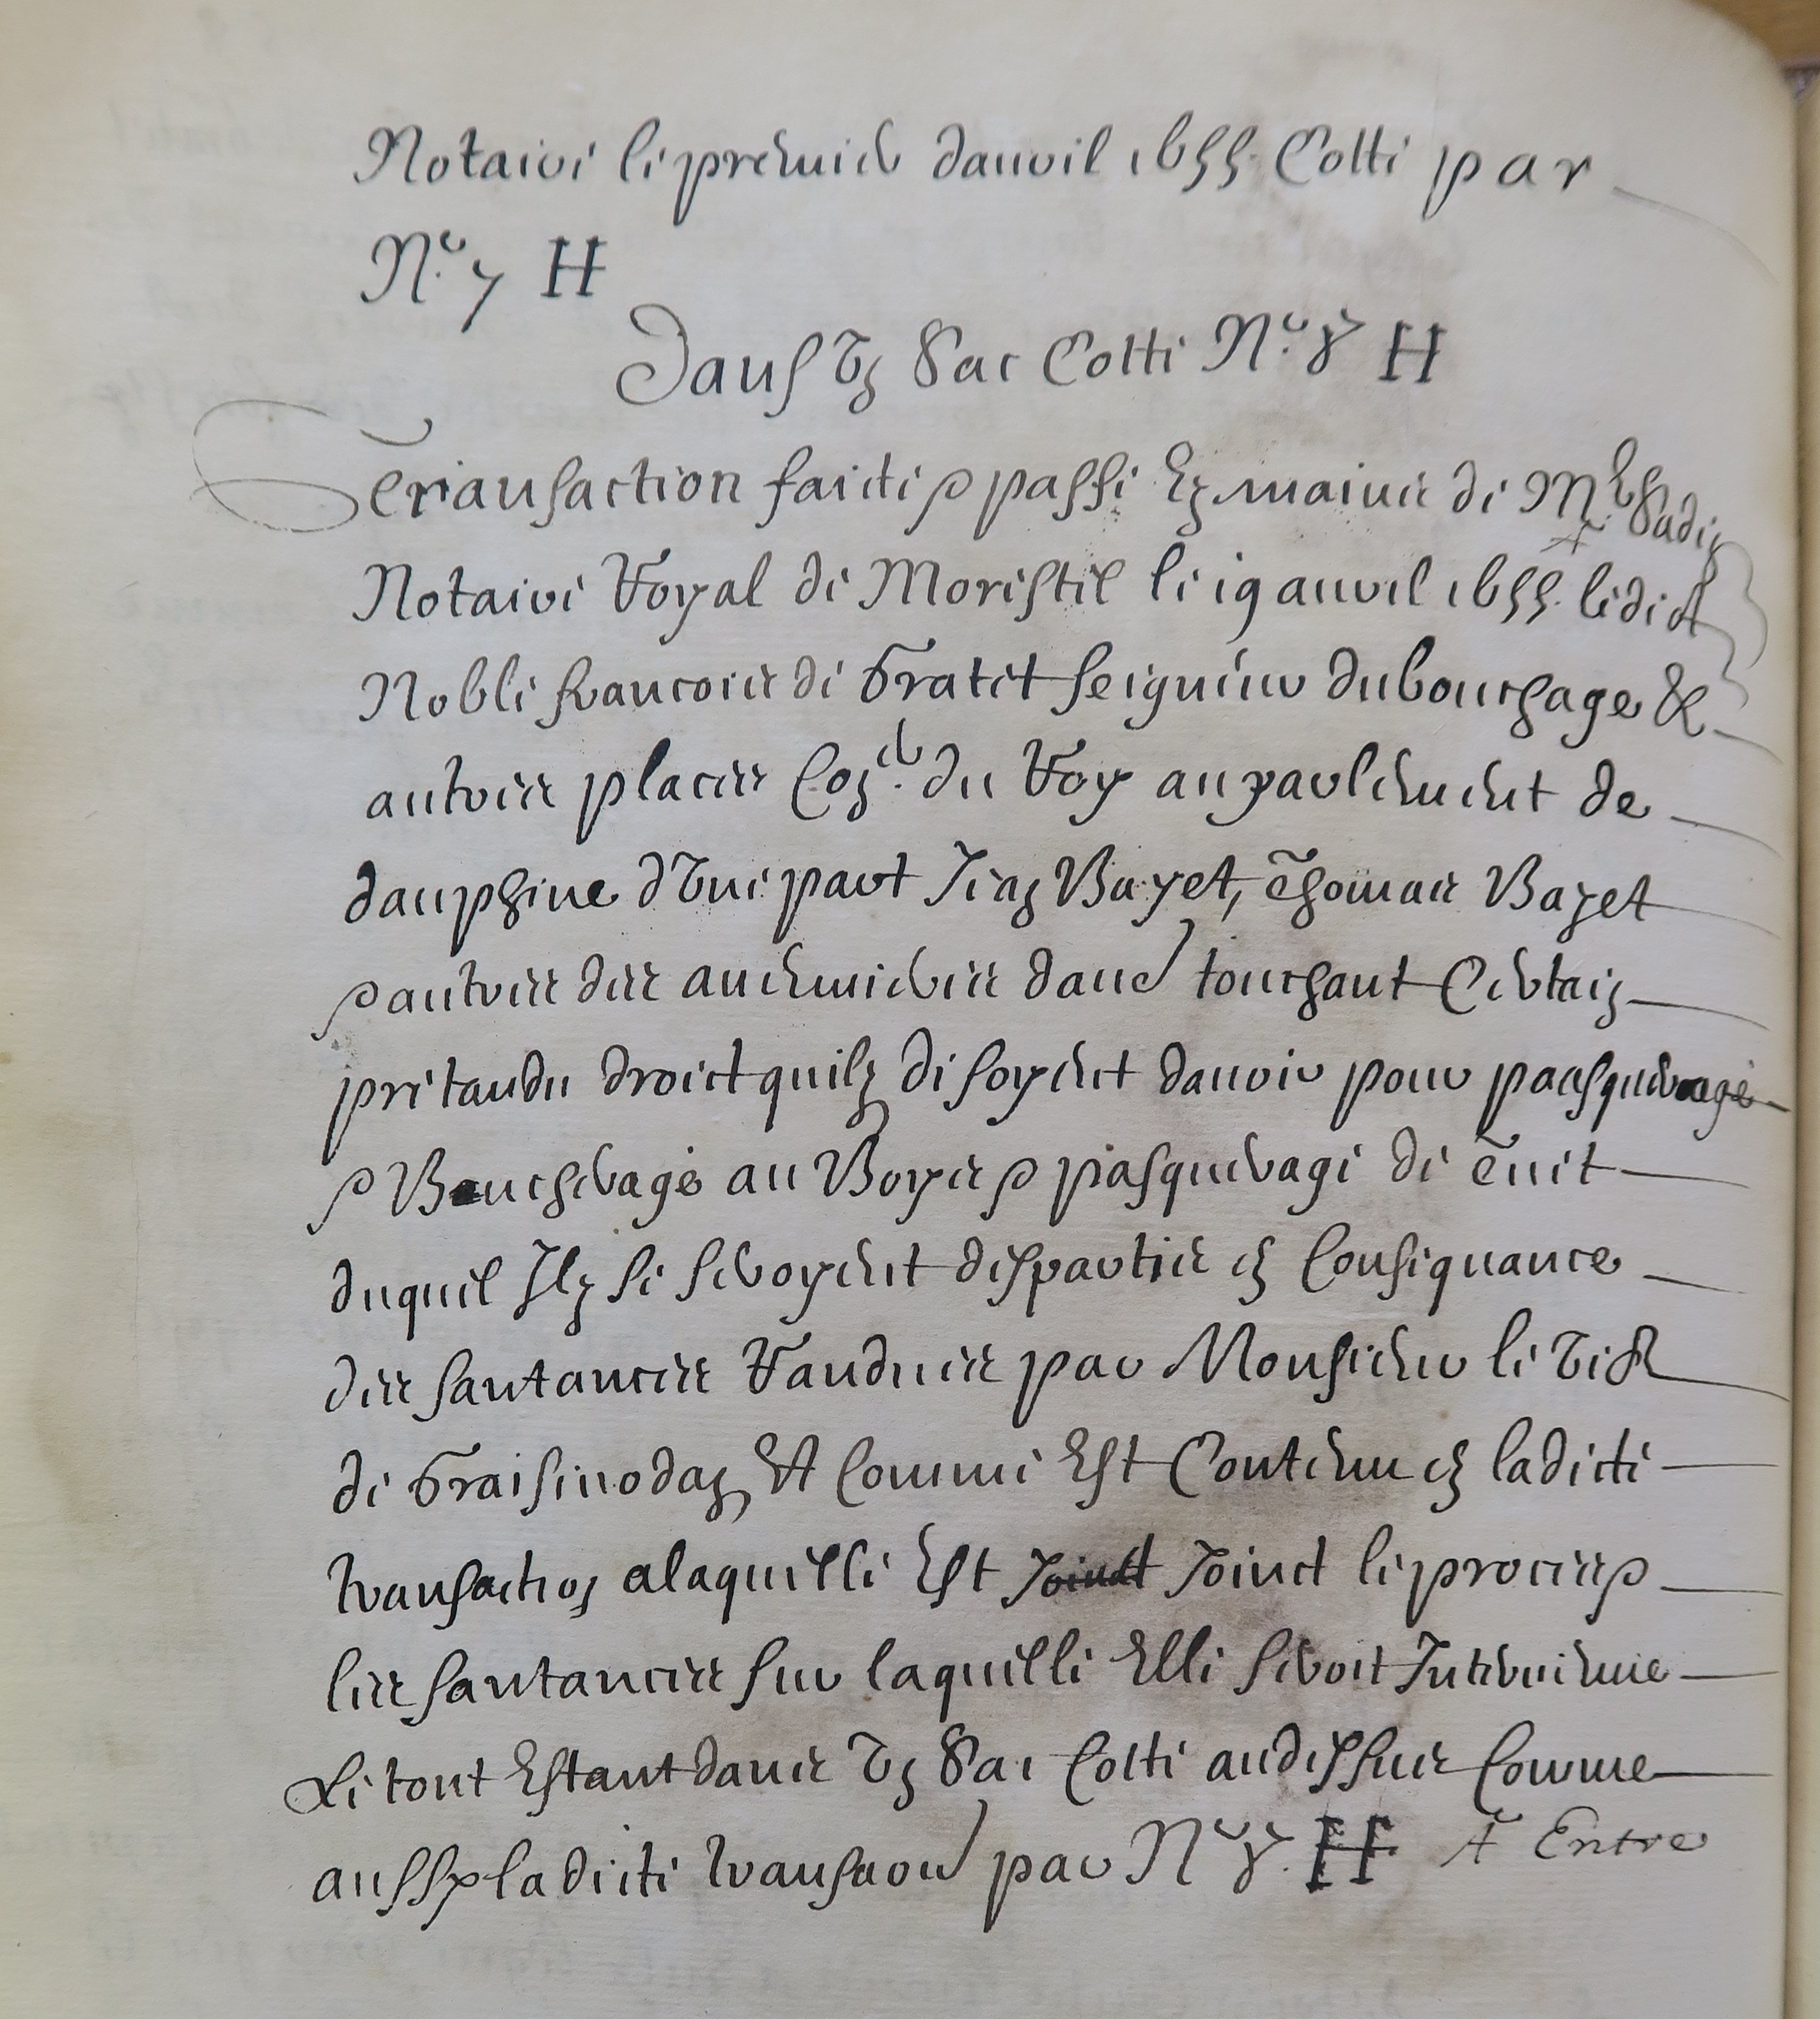 Notaire le premier dauril 1655 Cotté par
N.º 7 H
Dans vn Sac Cotté N.º 8 H
Transaction faicte & passé Es mains de M.e
Notaire Royal de Morestel le 19 auril 1655. ledict
Noble francois de Gratet seigneur dubouchage &
autres places Con.er du Roy au parlement de
dauphine d'vne part Jean Bayet, Thomas Bayet
& autres des auenieres daud touchant Certain
pretandu droict quilz disoyent dauoir pour pasquerage
& Bucherage au Boys & pasquerage de
duquel Ilz se seroyent despartis en Consequance
des santances Randues par Monsieur le Vice
de Graisiuodan, Et Comme Est Contenu en ladicte
transaction a laquelle Est Joinct le proces &
les santances sur laquelle Elle seroit Interuenue
Le tout Estant dans vn Sac Cotté audessus Comme
aussy ladicte transaon par Nº 8. H A Entre